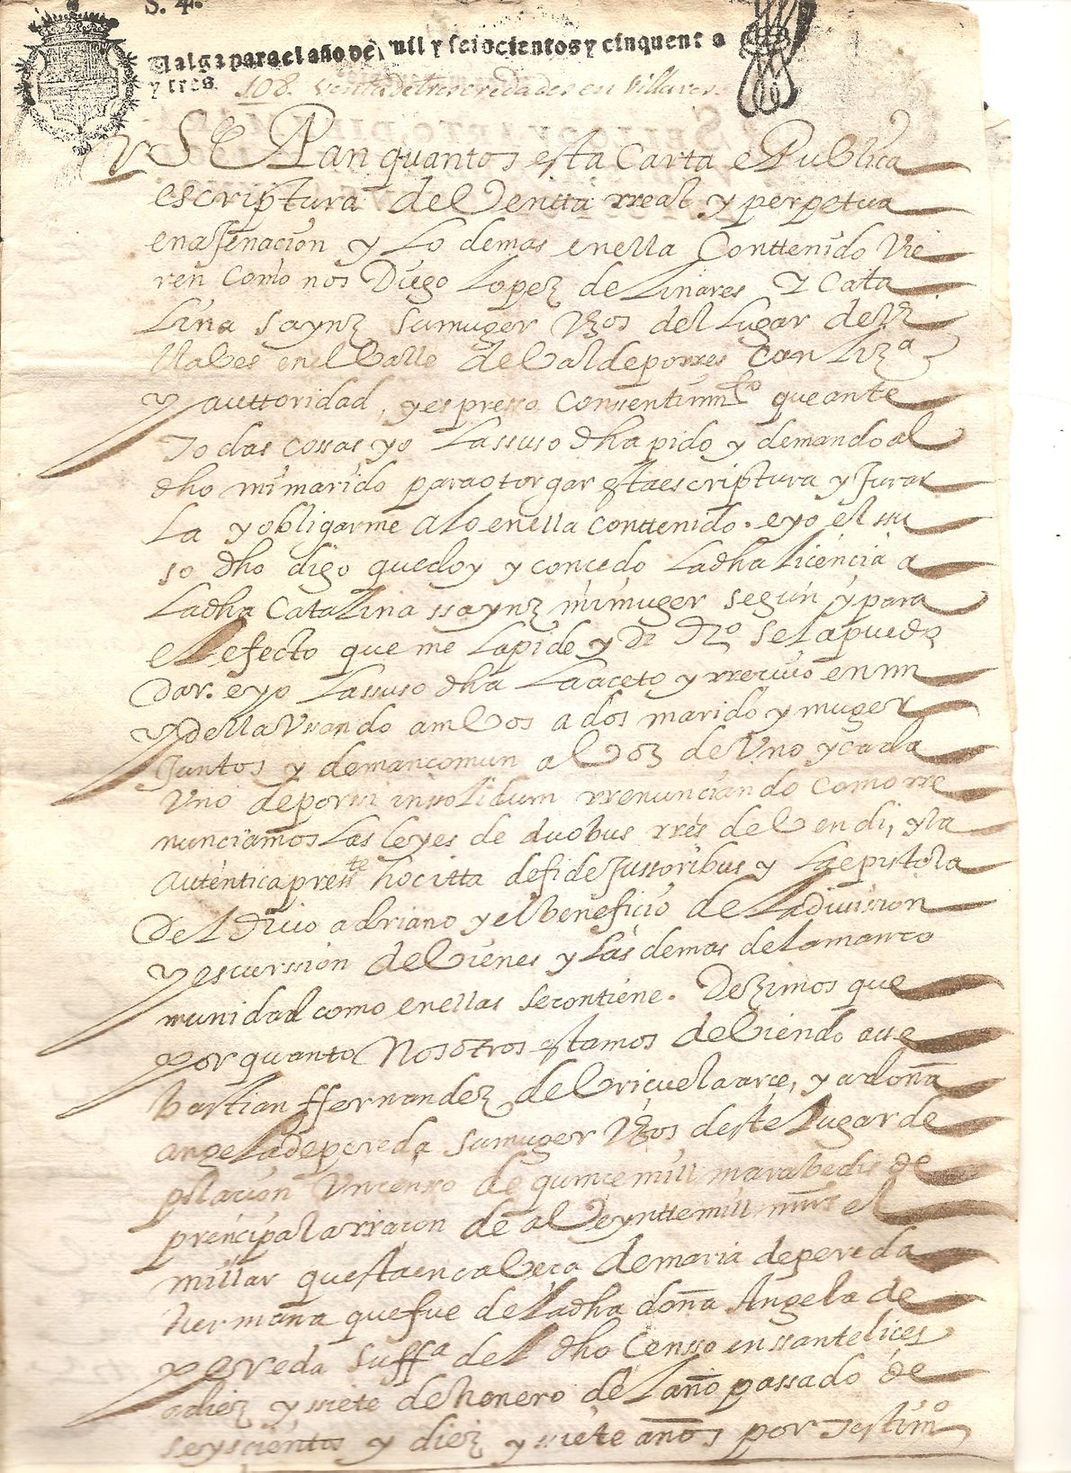 S. 4.
Valga para el año de mil y seiscientos y cinquenta
y tres.
108. Venta de heredades en Villaves.
Sepan quantos esta Carta e Publica
escriptura de Ventta rreal y perpetua
enajenacion y Lo demas en ella Conttenido Vie
ren Como nos Diego Lopez de Linares y Cata
Lina saynz su muger Vzos del Lugar de Vi
llabes en el Valle de Valdeporres Con liza
y auttoridad, y espresso Consentimto que ante
todas cossas yo La suso dha pido y demando al
dho mi marido para otorgar esta escriptura y Jurar
La y obligarme a lo en ella conttenido. e yo el su
so dho digo que doy y concedo La dha licencia a
La dha Catalina ssaynz mi muger según y para
el efecto que me La pide y de dro se La puedo
Dar. e yo La suso dha La aceto y rrecivo en mi
y della Usando ambos a dos marido y muger
Juntos y de mancomun a boz de Uno y cada
Uno de por si insolidum rrenunciando como rre
nunciamos Las leyes de duobus rres debendi, y la
autentica presste hocitta de fide Jussoribus y La epistola
Del divo adriano y el beneficio de La division
y escurssion de bienes y Las demas de la manco
munidad como en ellas se contiene. Dezimos que
por quanto Nosotros estamos debiendo a se
bastian ffernandez de brizuela arce, y a doña
angela de pereda su muger Vzos deste Lugar de
pilacion Un censo de quince mill marabedis de
principal a rracon de a Veyntte mill mrs el
millar que esta en cabeca de maria de pereda
hermana que fue de La dha doña Angela de
pereda su ffa del dho Censso en ssantelices
a diez y siete de henero del año passado de
seyscientos y diez y siete años por testimo